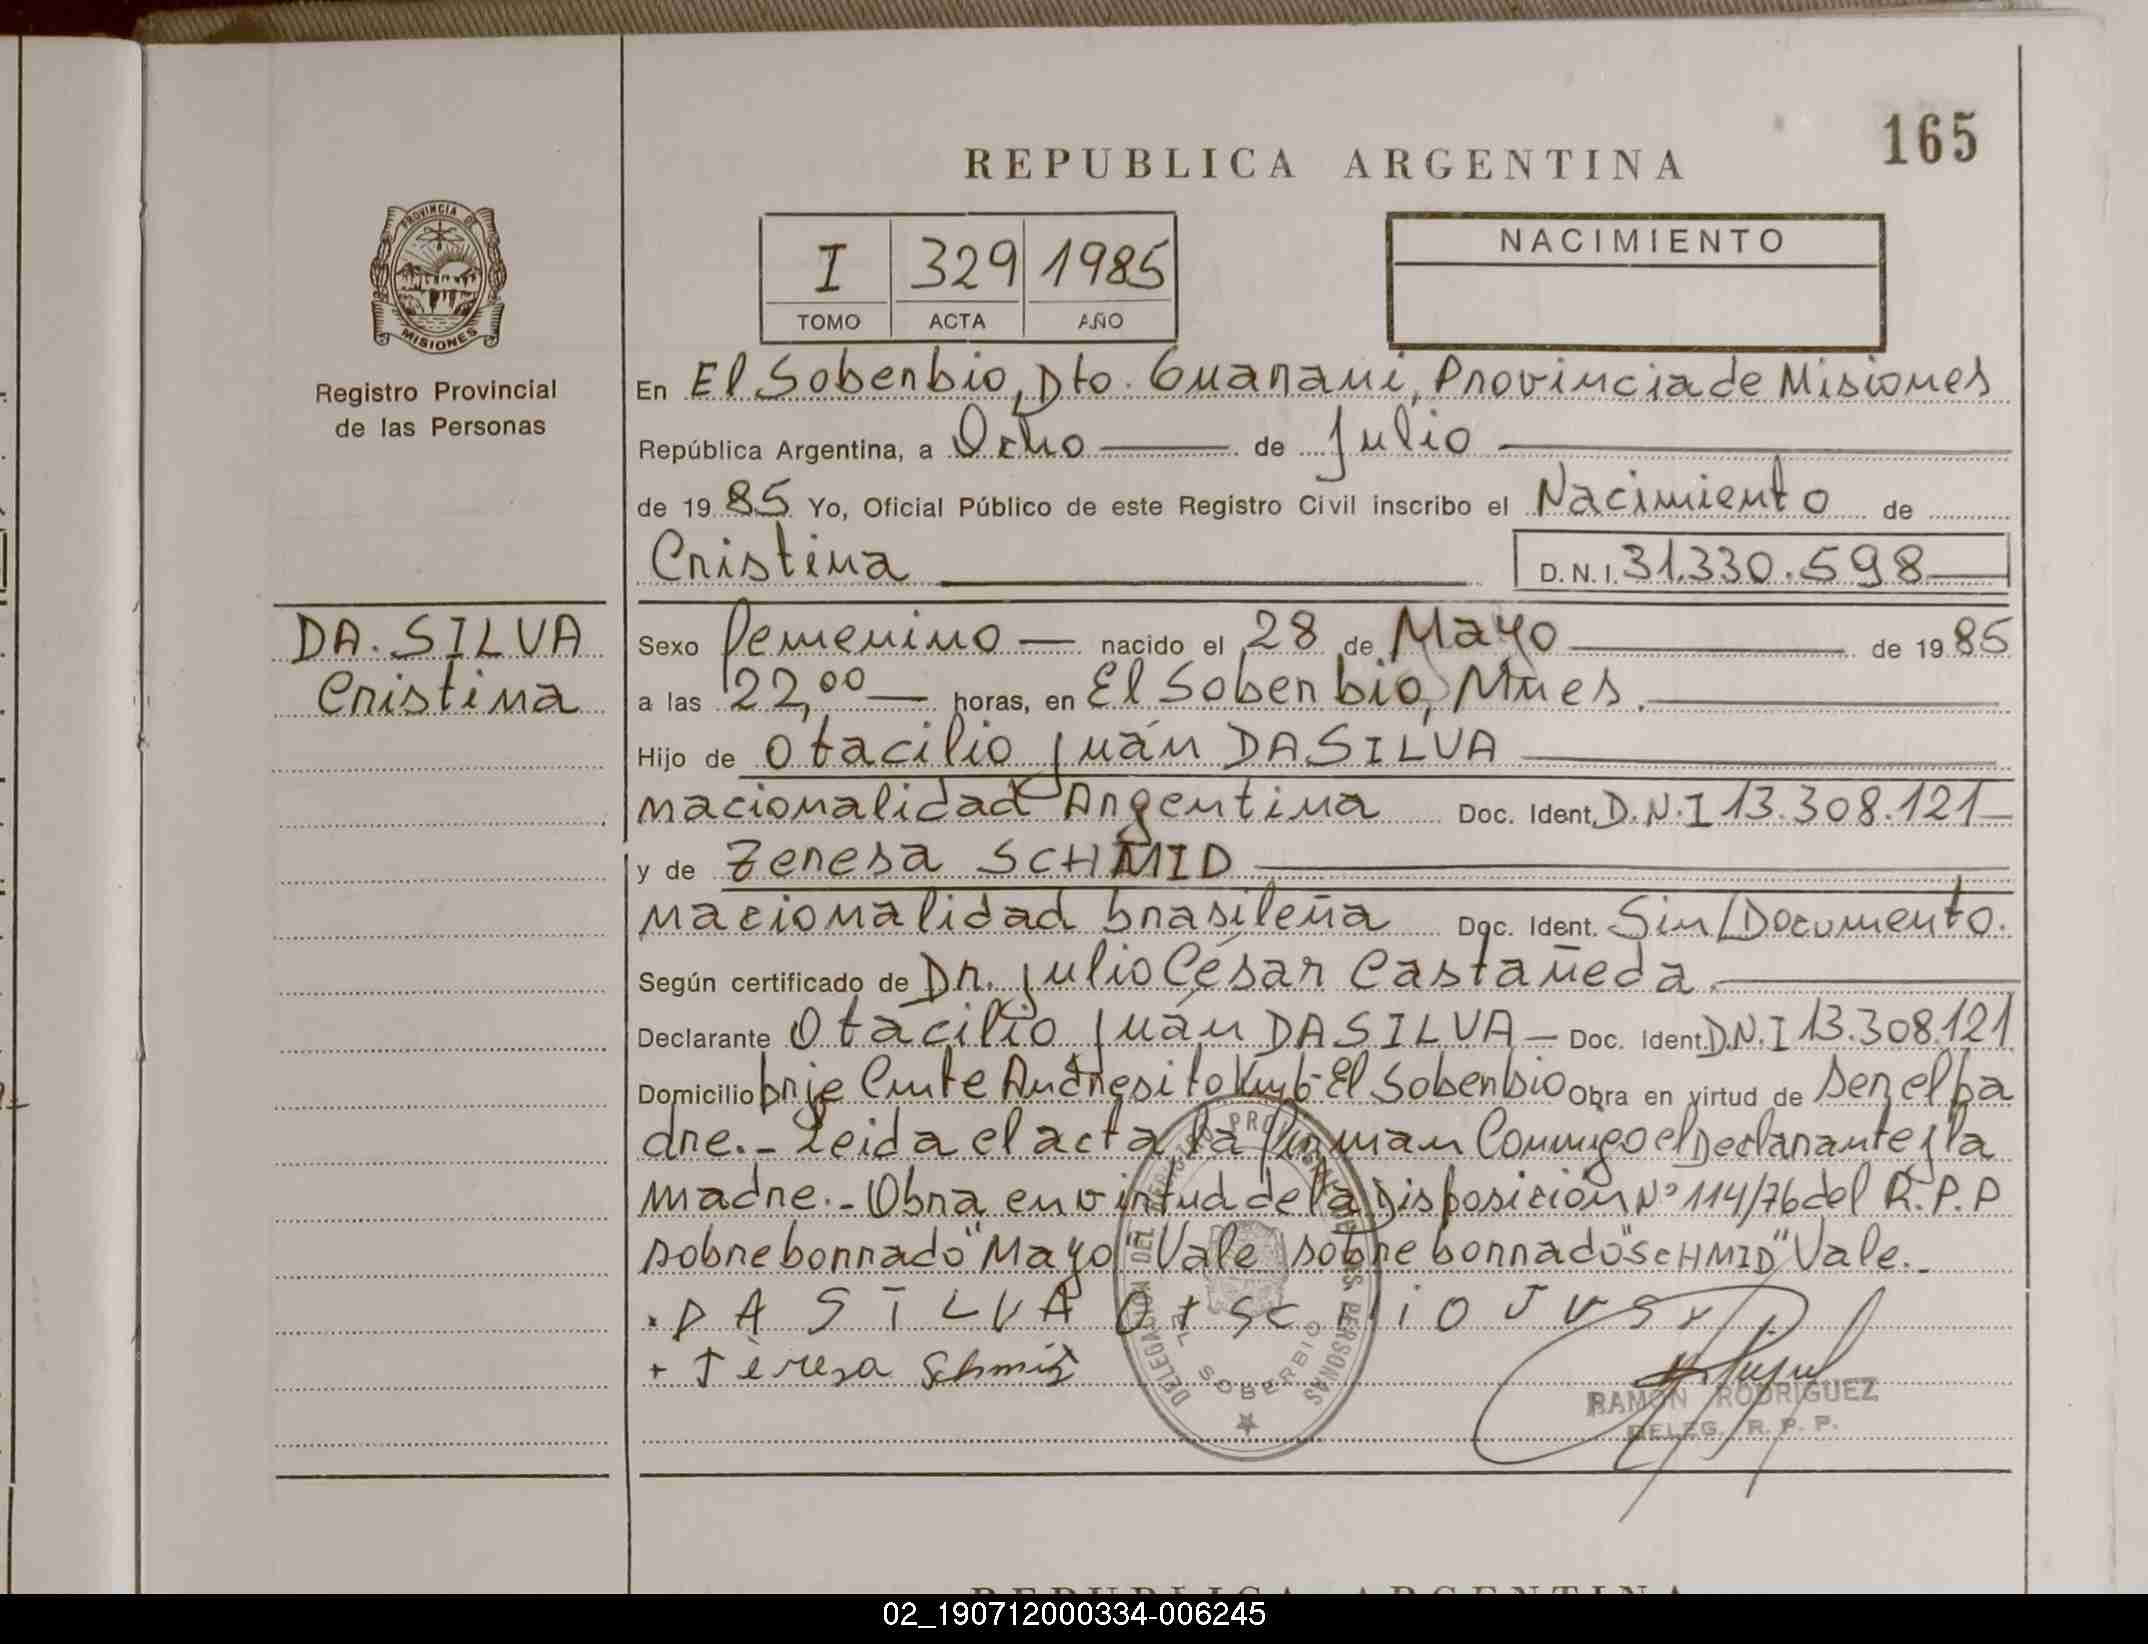 165
REPUBLICA ARGENTINA
I 329 1985
TOMO ACTA AÑO
NACIMIENTO
PROVINCIA DE
MISIONES
Registro Provincial
de las Personas
DA.SILVA
Cristina
En El Soberbio, Dto. Guarani, Provincia de Misiones
República Argentina, a Ocho de Julio
de 1985 Yo, Oficial Público de este Registro Civil inscribo el Nacimiento de
Cristina D.N.I. 31.330.598
Sexo Femenino nacido el 28 de Mayo de 1985
a las 22,00 horas, en El Soberbio, Mnes.
Hijo de Otacilio Juán DA SILVA
nacionalidad Argentina Doc. Ident. D.N.I 13.308.121
y de Teresa SCHMID
nacionalidad brasileña Doc. Ident. Sin/Documento.
Según certificado de Dr. Julio César Castañeda.
Declarante Otacilio Juán DA SILVA Doc. Ident. D.N.I 13.308.121
Domicilio Andresito Km 6-El Soberbio Obra en virtud de ser el pa
dre.- Leida el acta, la firman Conmigo el Declarante y la
madre.- Obra en virtud de la Disposición Nº 114/76 del R.P.P
sobreborrado "Mayo" Vale sobreborrado "SCHMID" Vale.-
DA SILVA
+ Teresa Schmid
DELEGACION DEL REGISTRO PROVINCIAL DE LAS PERSONAS
EL SOBERBIO
RAMON RODRIGUEZ
DELEG. R. P. P.
REPUBLICA ARGENTINA
02_190712000334-006245